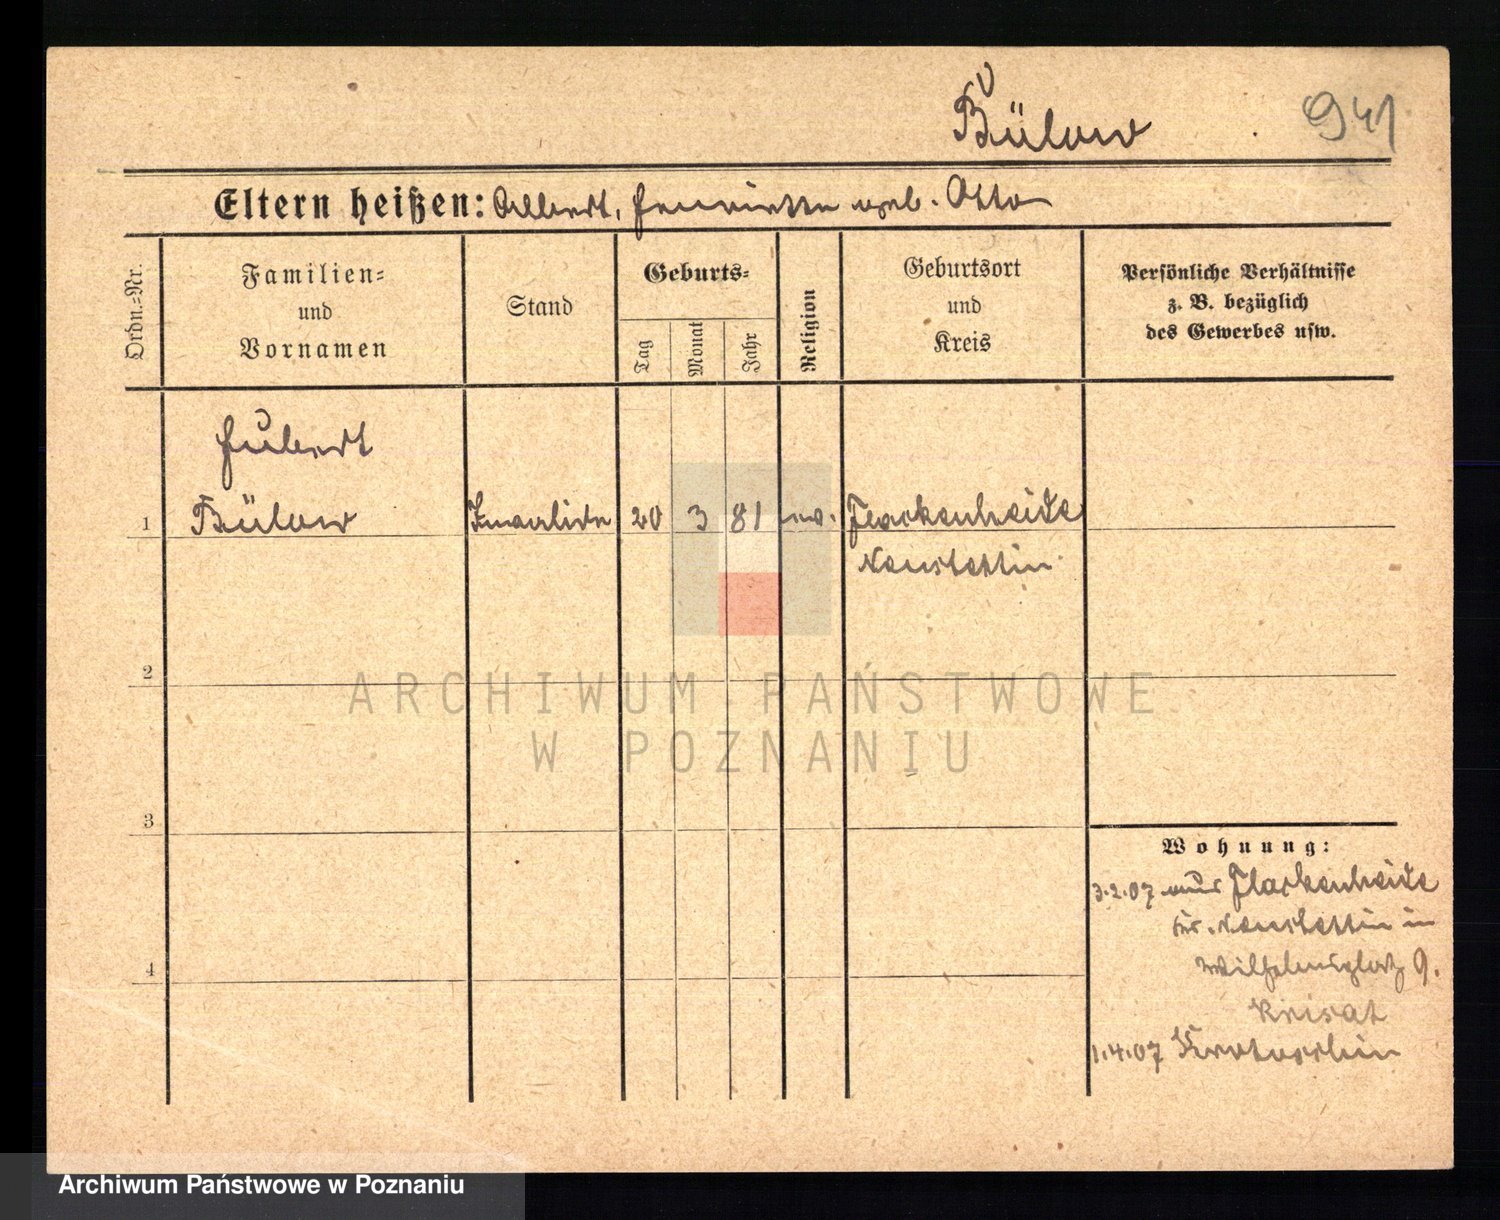 Bülow
941
Eltern heißen: Albert, Henriette geb. Otto
Ordn.-Nr.
Familien-
und
Vornamen
Stand
Geburts-
Tag
Monat
Jahr
Religion
Geburtsort
und
Kreis
Persönliche Verhältnisse
z. B. bezüglich
des Gewerbes usw.
Hubert
1 Bülow Invalide 20 3 81 ev. Flackenheide
Neustettin
2
ARCHIWUM PAŃSTWOWE
W POZNANIU
3
Wohnung:
3.2.07 aus Flackenheide
Kr. Neustettin in
Wilhelmsplatz 9.
4
1.4.07 Krotoschin
Archiwum Państwowe w Poznaniu